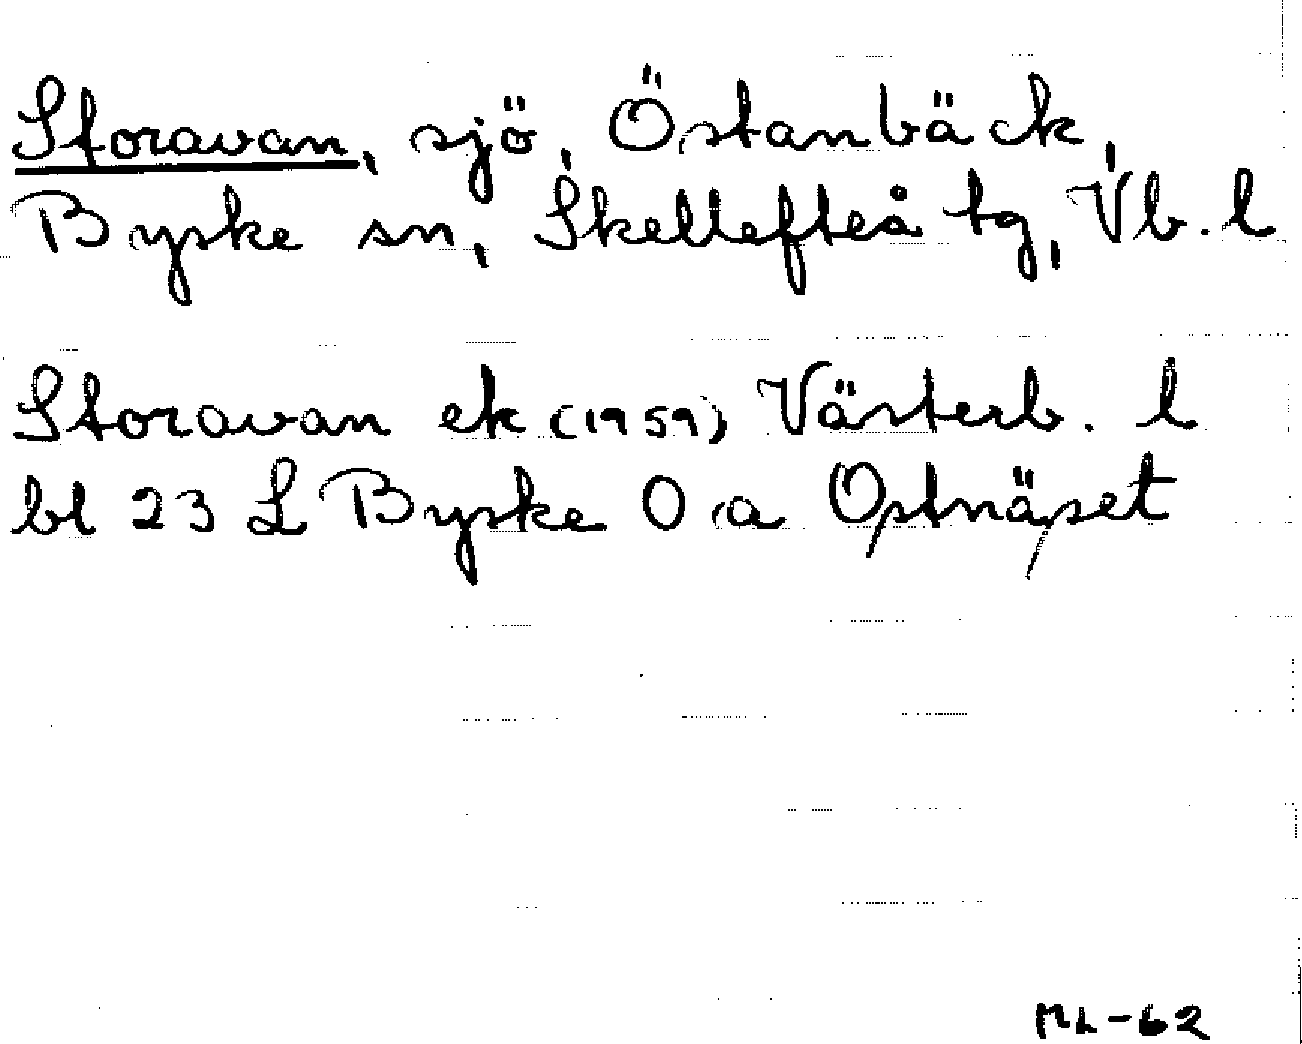 Storavan, sjö, Östanbäck,
Byske sn, Skellefteå tg, Vb. l
Storavan ek (1959) Västerb. l
bl 23 L Byske O a Ostnäset
ML-62